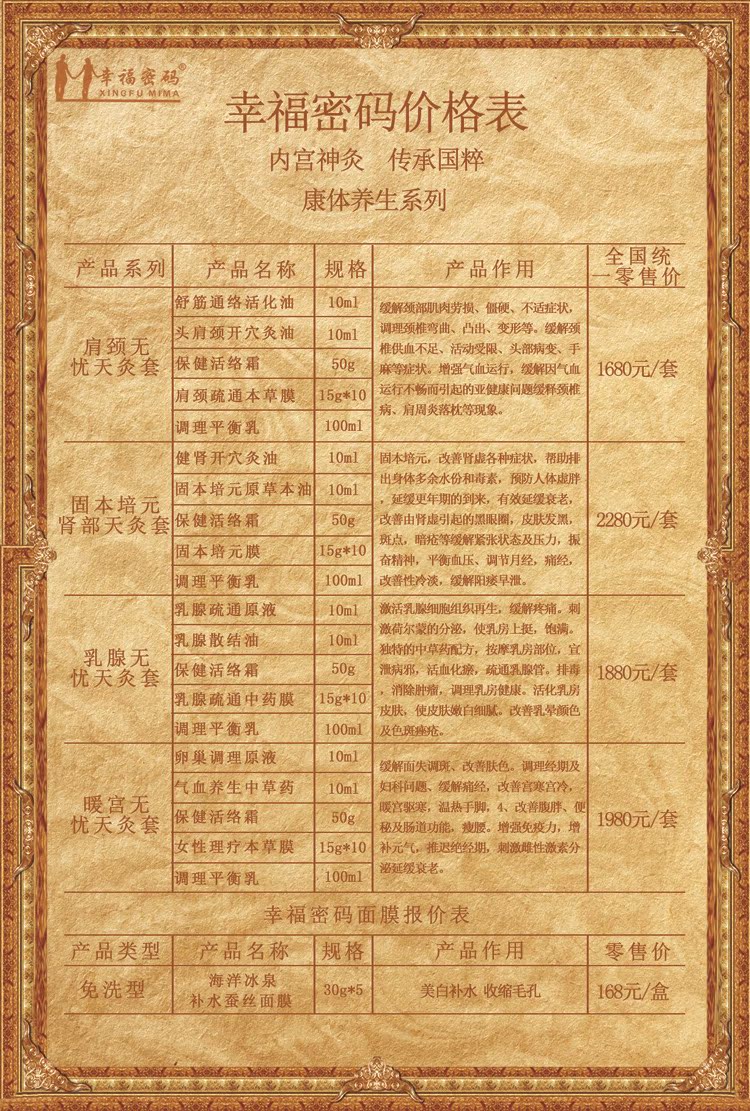 幸福密码®
XINGFU MIMA
幸福密码价格表
内宫神灸 传承国粹
康体养生系列
产品系列 产品名称 规格 产品作用 全国统
一零售价
肩颈无
忧天灸套
舒筋通络活化油 10ml
头肩颈开穴灸油 10ml
保健活络霜 50g
肩颈疏通本草膜 15g*10
调理平衡乳 100ml
缓解颈部肌肉劳损、僵硬、不适症状,
调理颈椎弯曲、凸出、变形等。缓解颈
椎供血不足、活动受限、头部病变、手
麻等症状。增强气血运行,缓解因气血
运行不畅而引起的亚健康问题缓释颈椎
病、肩周炎落枕等现象。
1680元/套
固本培元
肾部天灸套
健肾开穴灸油 10ml
固本培元原草本油 10ml
保健活络霜 50g
固本培元膜 15g*10
调理平衡乳 100ml
固本培元,改善肾虚各种症状,帮助排
出身体多余水份和毒素,预防人体虚胖
,延缓更年期的到来,有效延缓衰老,
改善由肾虚引起的黑眼圈,皮肤发黑,
斑点,暗疮等缓解紧张状态及压力,振
奋精神,平衡血压、调节月经,痛经,
改善性冷淡,缓解阳痿早泄。
2280元/套
乳腺无
忧天灸套
乳腺疏通原液 10ml
乳腺散结油 10ml
保健活络霜 50g
乳腺疏通中药膜 15g*10
调理平衡乳 100ml
激活乳腺细胞组织再生,缓解疼痛。刺
激荷尔蒙的分泌,使乳房上挺,饱满。
独特的中草药配方,按摩乳房部位,宣
泄病邪,活血化瘀,疏通乳腺管。排毒
,消除肿瘤,调理乳房健康。活化乳房
皮肤,使皮肤嫩白细腻。改善乳晕颜色
及色斑痤疮。
1880元/套
暖宫无
忧天灸套
卵巢调理原液 10ml
气血养生中草药 10ml
保健活络霜 50g
女性理疗本草膜 15g*10
调理平衡乳 100ml
缓解面失调斑、改善肤色。调理经期及
妇科问题、缓解痛经,改善宫寒宫冷,
暖宫驱寒,温热手脚,4、改善腹胖、便
秘及肠道功能,瘦腰。增强免疫力,增
补元气,推迟绝经期,刺激雌性激素分
泌延缓衰老。
1980元/套
幸福密码面膜报价表
产品类型 产品名称 规格 产品作用 零售价
免洗型
海洋冰泉
补水蚕丝面膜
30g*5 美白补水 收缩毛孔 168元/盒